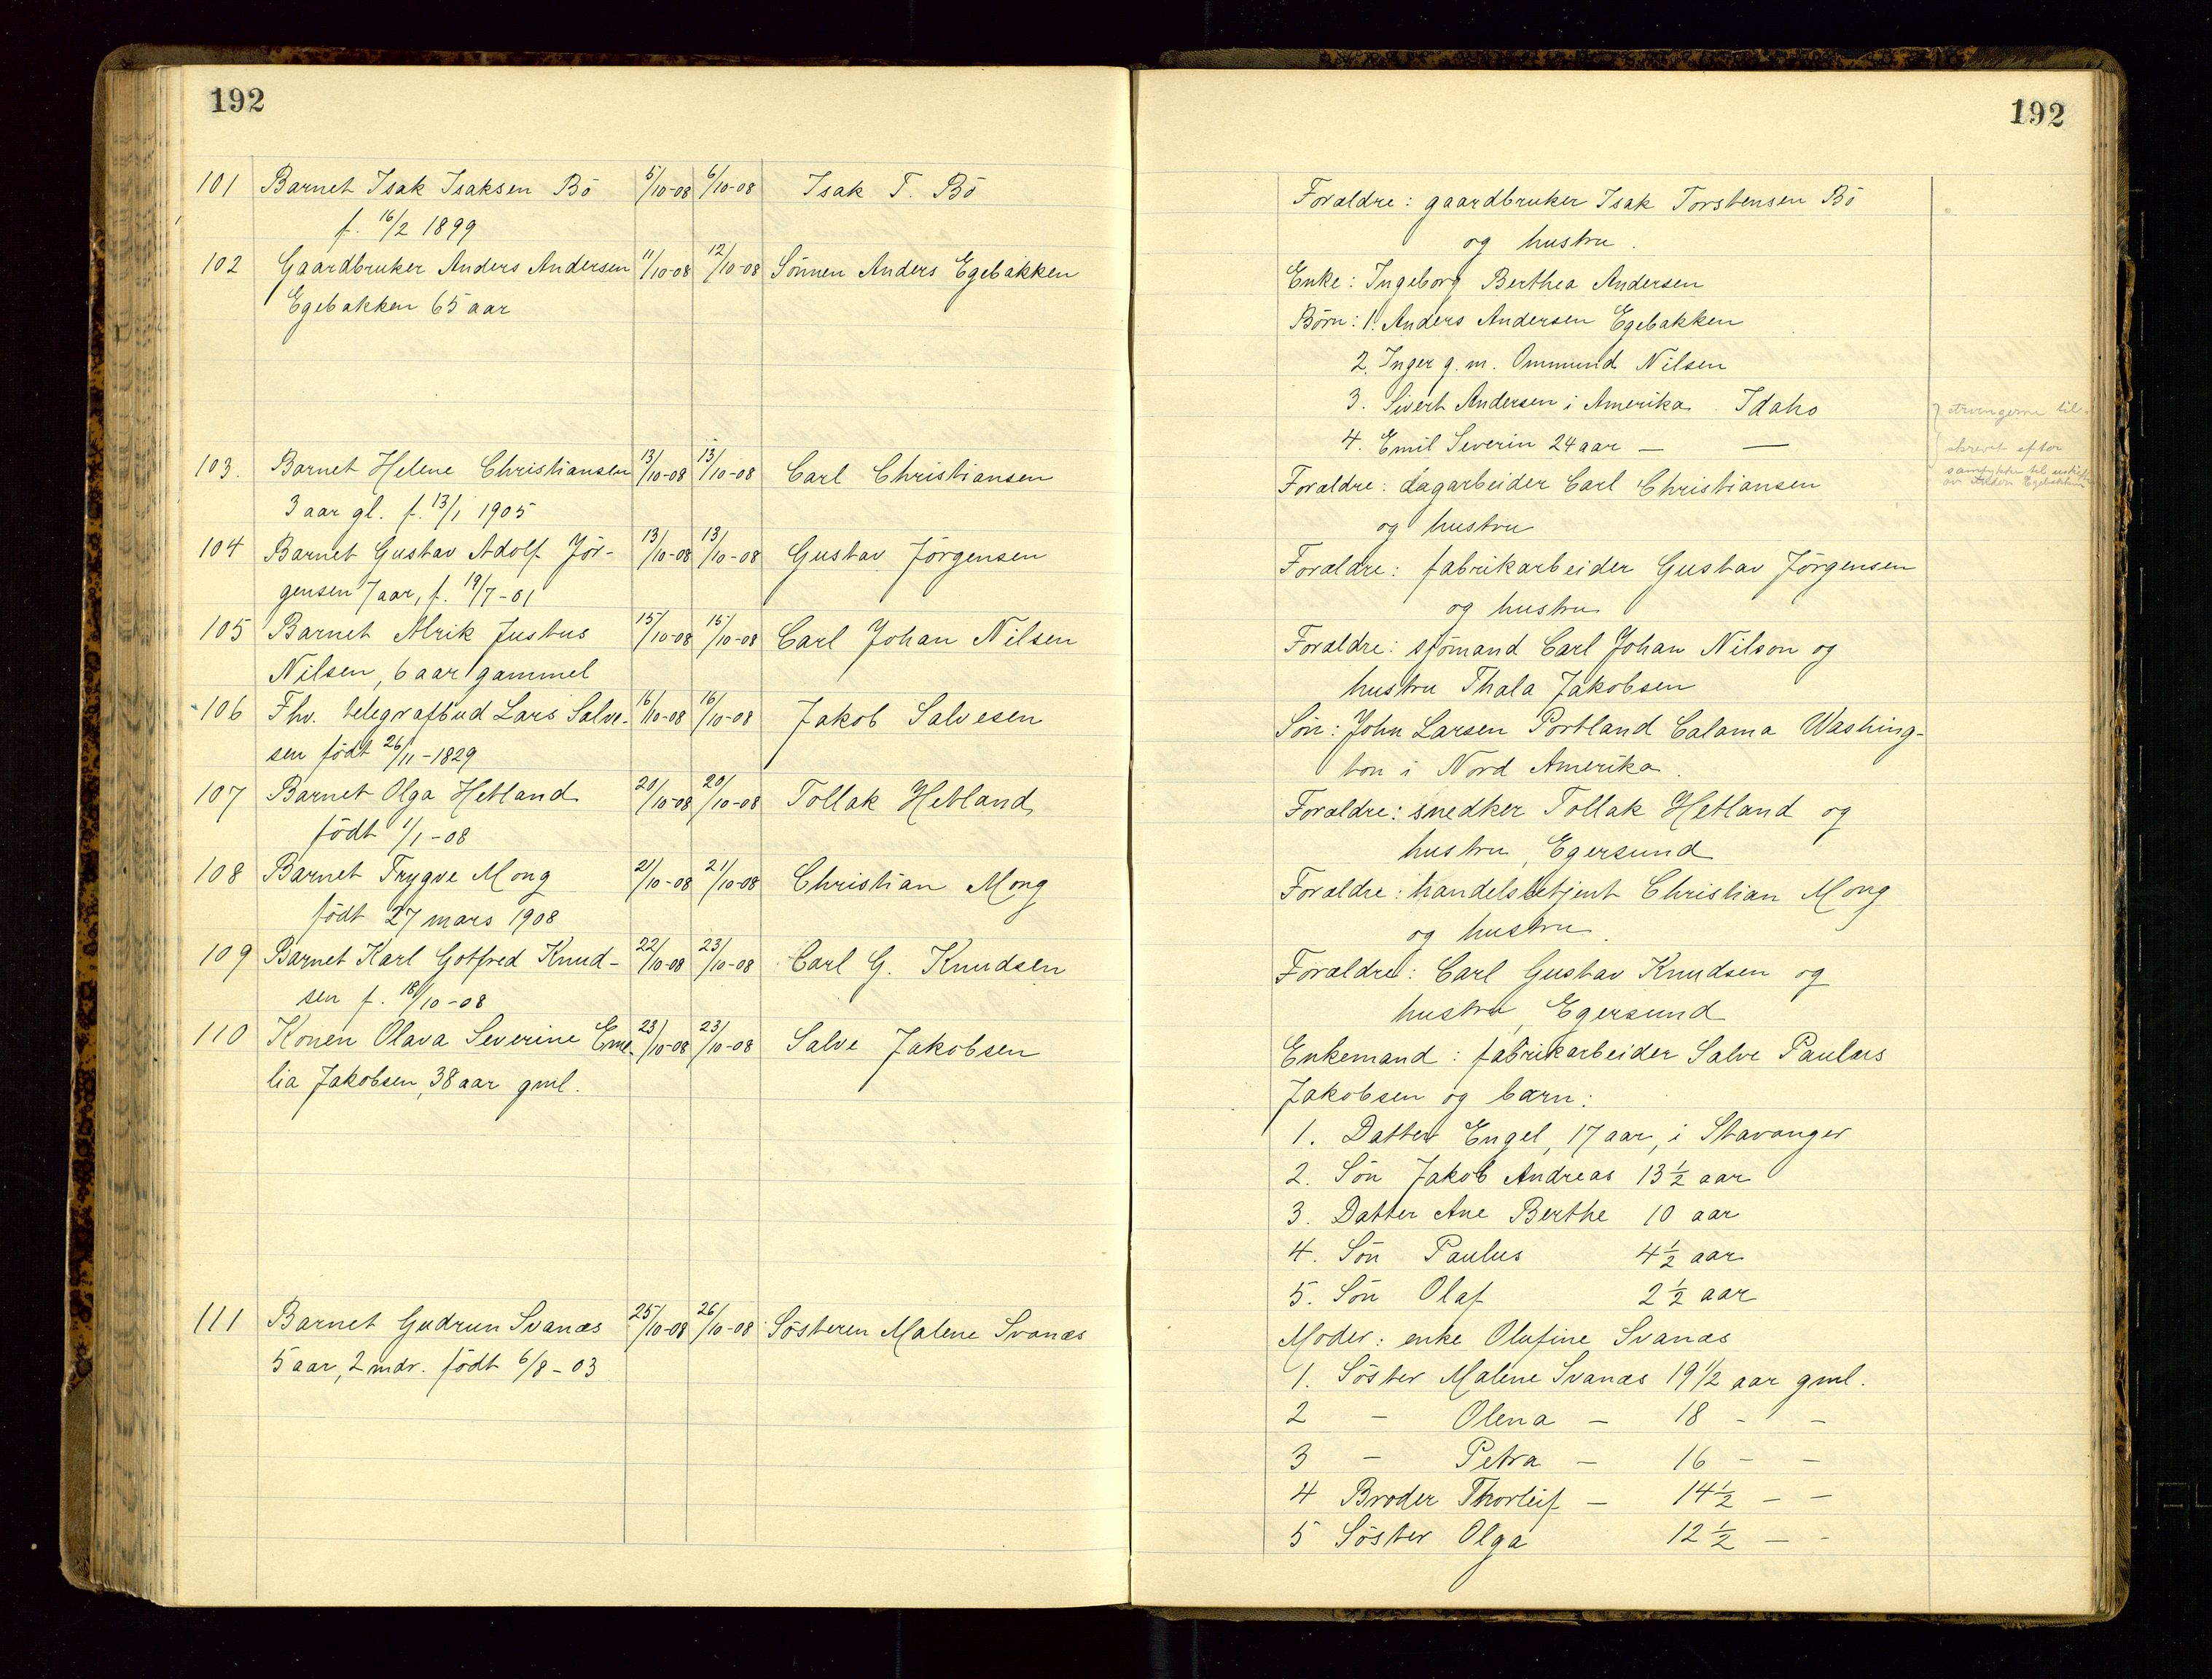 192
101 Barnet Isak Isaksen Bö 5/10-08 6/10-08 Isak T. Bö
f. 16/2 1899
102 Gaardbruker Anders Andersen 11/10-08 12/10-08 Sönnen Anders Egebakken
Egebakken 65 aar
103. Barnet Helene Christiansen 13/10-08 13/10-08 Carl Christiansen
3 aar gl. f. 13/1 1905
104 Barnet Gustav Adolf Jör- 13/10-08 13/10-08 Gustav Jörgensen
gensen 7 aar, f. 19/7-01
105 Barnet Alrik Justus 15/10-08 15/10-08 Carl Johan Nilsen
Nilsen, 6 aar gammel
106 Fhv. telegrafbud Lars Salve- 16/10-08 16/10-08 Jakob Salvesen
sen födt 26/11-1829
107 Barnet Olga Hetland 20/10-08 20/10-08 Tollak Hetland
födt 1/1-08
108 Barnet Trygve Mong 21/10-08 21/10-08 Christian Mong
födt 27 mars 1908
109 Barnet Karl Gotfred Knud- 22/10-08 23/10-08 Carl G. Knudsen
sen f. 18/10-08
110 Konen Olava Severine Eme- 23/10-08 23/10-08 Salve Jakobsen
lia Jakobsen, 38 aar gml.
111 Barnet Gudrun Svanæs 25/10-08 26/10-08 Sösteren Malene Svanæs
5 aar, 2 mdr. födt 6/8-03
192
Forældre: gaardbruker Isak Torstensen Bö
og hustru.
Enke: Ingeborg Berthea Andersen
Börn: 1. Anders Andersen Egebakken
2. Inger g. m. Ommund Nilsen
3. Sivert Andersen i Amerika Idaho
4. Emil Severin 24 aar — —
arvingerne til-
skrevt efter
samtykke til
av Egebakken
Forældre: dagarbeider Carl Christiansen
og hustru
Forældre: fabrikarbeider Gustav Jörgensen
og hustru
Forældre: sjömand Carl Johan Nilson og
hustru Thala Jakobsen
Sön: John Larsen Portland Calama Washing-
ton i Nord Amerika.
Forældre: snedker Tollak Hetland og
hustru, Egersund
Forældre: handelsbetjent Christian Mong
og hustru.
Forældre: Carl Gustav Knudsen og
hustru, Egersund
Enkemand: fabrikarbeider Salve Paulus
Jakobsen og barn:
1. Datter Engel, 17 aar, i Stavanger
2. Sön Jakob Andreas 13 1/2 aar
3. Datter Ane Berthe 10 aar
4. Sön Paulus 4 1/2 aar
5. Sön Olaf 2 1/2 aar
Moder: enke Olufine Svanæs
1. Söster Malene Svanæs 19 1/2 aar gml.
2 — Olena — 18 — —
3 — Petra — 16 — —
4 Broder Thorleif — 14 1/2 — —
5 Söster Olga 12 1/2 — —